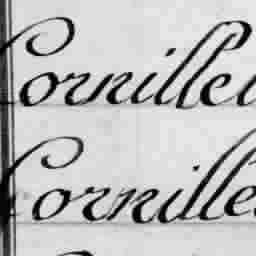 Cornillei
Cornilles